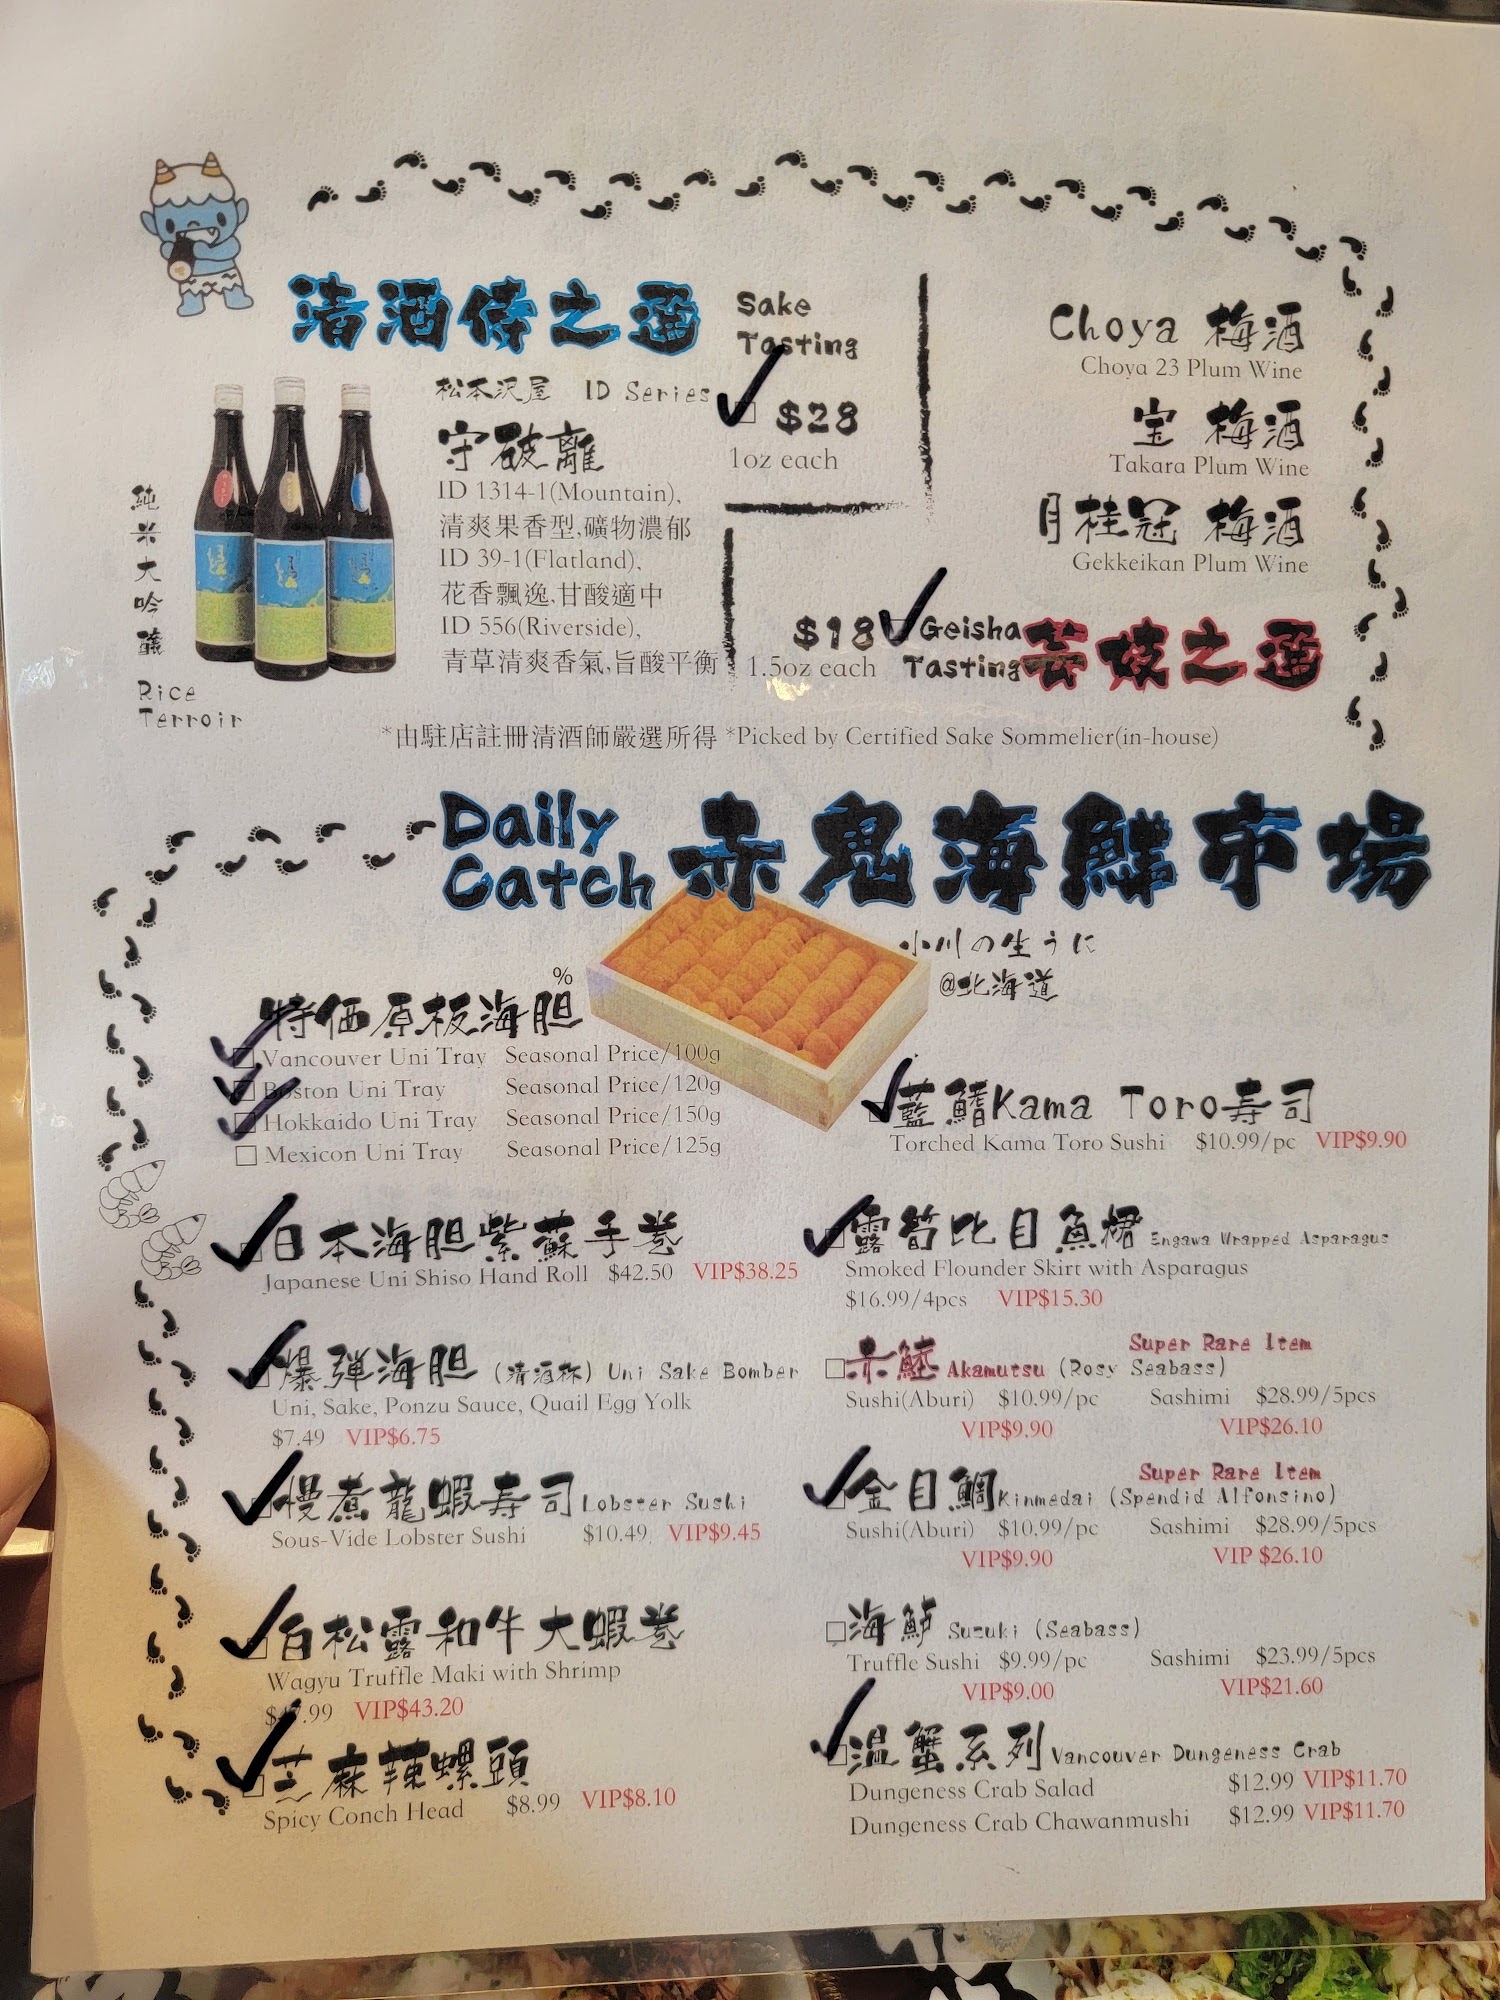 清酒侍之選
Sake
Tasting
松本沢屋 ID Series
$28
1oz each
守破離
ID 1314-1(Mountain),
清爽果香型,礦物濃郁
ID 39-1(Flatland),
花香飄逸,甘酸適中
ID 556(Riverside),
青草清爽香氣,旨酸平衡
純米大吟釀
Rice
Terroir
Choya 梅酒
Choya 23 Plum Wine
宝 梅酒
Takara Plum Wine
月桂冠 梅酒
Gekkeikan Plum Wine
$18 Geisha
1.5oz each Tasting
芸妓之選
*由駐店註冊清酒師嚴選所得 *Picked by Certified Sake Sommelier(in-house)
Daily
Catch
赤鬼海鮮市場
小川の生うに
@北海道
%
特価原板海胆
Vancouver Uni Tray Seasonal Price/100g
Boston Uni Tray Seasonal Price/120g
Hokkaido Uni Tray Seasonal Price/150g
Mexicon Uni Tray Seasonal Price/125g
藍鰭Kama Toro寿司
Torched Kama Toro Sushi $10.99/pc VIP$9.90
日本海胆紫蘇手卷
Japanese Uni Shiso Hand Roll $42.50 VIP$38.25
露笱比目魚裙 Engawa Wrapped Asparagus
Smoked Flounder Skirt with Asparagus
$16.99/4pcs VIP$15.30
爆弾海胆 (清酒杯) Uni Sake Bomber
Uni, Sake, Ponzu Sauce, Quail Egg Yolk
$7.49 VIP$6.75
Super Rare Item
赤鯥 Akamutsu (Rosy Seabass)
Sushi(Aburi) $10.99/pc Sashimi $28.99/5pcs
VIP$9.90 VIP$26.10
慢煮龍蝦寿司 Lobster Sushi
Sous-Vide Lobster Sushi $10.49 VIP$9.45
Super Rare Item
金目鯛 Kinmedai (Spendid Alfonsino)
Sushi(Aburi) $10.99/pc Sashimi $28.99/5pcs
VIP$9.90 VIP $26.10
白松露和牛大蝦卷
Wagyu Truffle Maki with Shrimp
VIP$43.20
海鱸 Suzuki (Seabass)
Truffle Sushi $9.99/pc Sashimi $23.99/5pcs
VIP$9.00 VIP$21.60
芝麻辣螺頭
Spicy Conch Head $8.99 VIP$8.10
温蟹系列 Vancouver Dungeness Crab
Dungeness Crab Salad $12.99 VIP$11.70
Dungeness Crab Chawanmushi $12.99 VIP$11.70